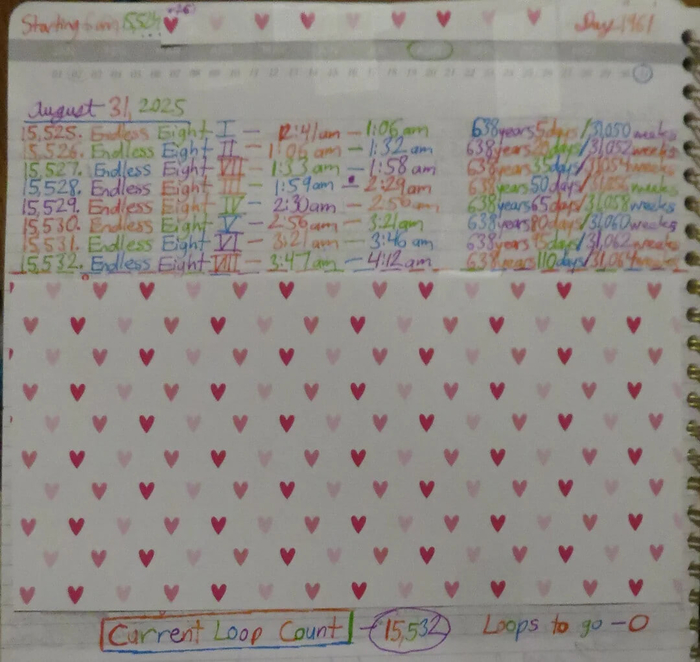 Starting from 15,524 Day 1961
01 02 03 04 05 06 07 08 09 10 11 12 13 14 15 16 17 18 19 20 21 22 23 24 25 26 27 28 29 30 31
August 31, 2025
15,525. Endless Eight I — 12:41am — 1:06am 638years5days/31,050weeks
15,526. Endless Eight II — 1:06am — 1:32am 638years20days/31,052weeks
15,527. Endless Eight VIII — 1:33am — 1:58am 638years35days/31,054weeks
15,528. Endless Eight III — 1:59am — 2:29am 638years50days/31,056weeks
15,529. Endless Eight IV — 2:30am — 2:56am 638years65days/31,058weeks
15,530. Endless Eight V — 2:56am — 3:21am 638years80days/31,060weeks
15,531. Endless Eight VI — 3:21am — 3:46am 638years95days/31,062weeks
15,532. Endless Eight VII — 3:47am — 4:12am 638years110days/31,064weeks
Current Loop Count — 15,532 Loops to go — 0